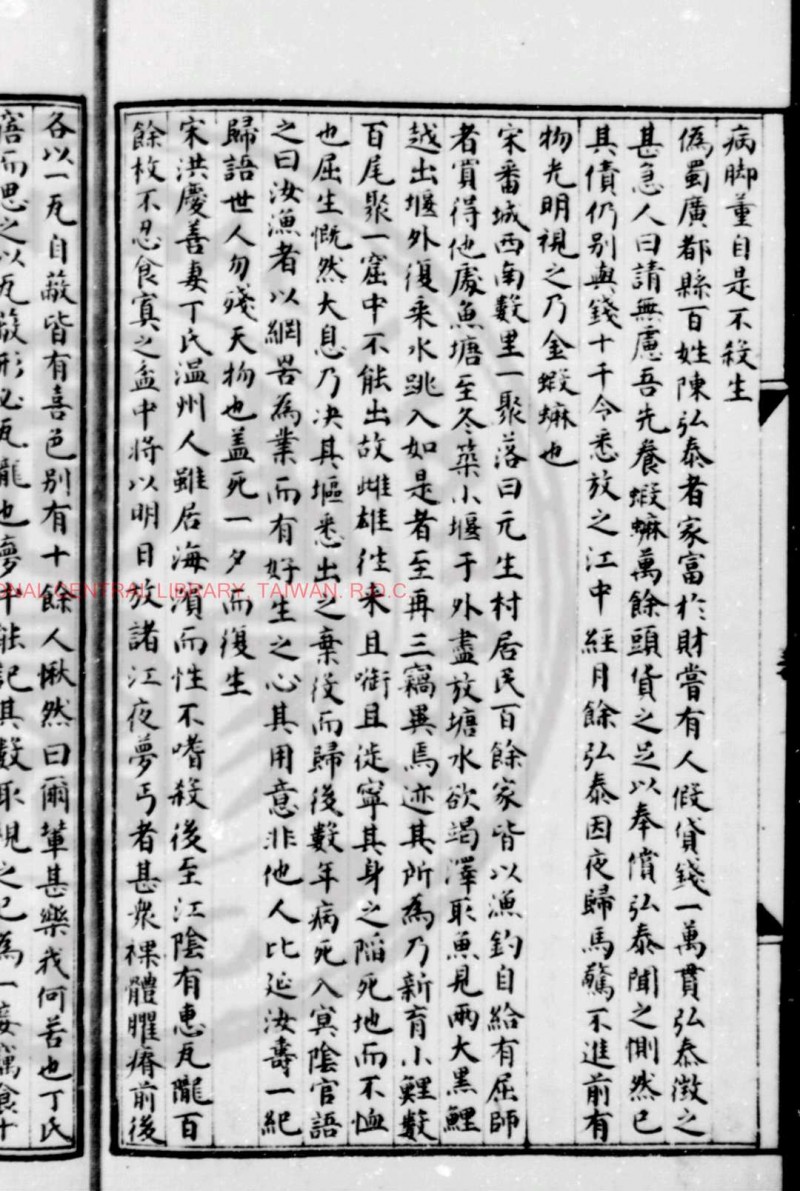 病脚董自是不殺生
偽蜀廣都縣百姓陳弘泰者家富於財嘗有人假貸錢一萬貫弘泰徵之
甚急人曰請無慮吾先養蝦蟆萬餘頭貨之足以奉償弘泰聞之惻然已
其債仍別與錢十千令悉放之江中經月餘弘泰因夜歸馬驚不進前有
物光明視之乃金蝦蟆也
宋番城西南數里一聚落曰元生村居民百餘家皆以漁釣自給有屈師
者賞得他處魚塘至冬築小堰于外盡放塘水欲竭澤取魚見兩大黑鯉
越出堰外復乘水跳入如是者至再三竊異焉迹其所為乃新育小鯉數
百尾聚一窟中不能出故雌雄往來且銜且徙寧其身之陷死地而不恤
也屈生慨然大息乃决其堰悉出之棄役而歸後數年病死入冥陰官語
之曰汝漁者以網罟為業而有好生之心其用意非他人比延汝壽一紀
歸語世人勿殘天物也盖死一夕而復生
宋洪慶善妻丁氏温州人雖居海濱而性不嗜殺後至江陰有惠瓦隴百
餘枚不忍食寘之盆中將以明日放諸江夜夢丐者甚衆裸體臞瘠前後
各以一瓦自蔽皆有喜色別有十餘人愀然曰爾輩甚樂我何苦也丁氏
寤而思之以瓦蔽形必瓦隴也夢中能記其數取視之已為一妾竊食十
NATIONAL CENTRAL LIBRARY, TAIWAN. R.O.C.